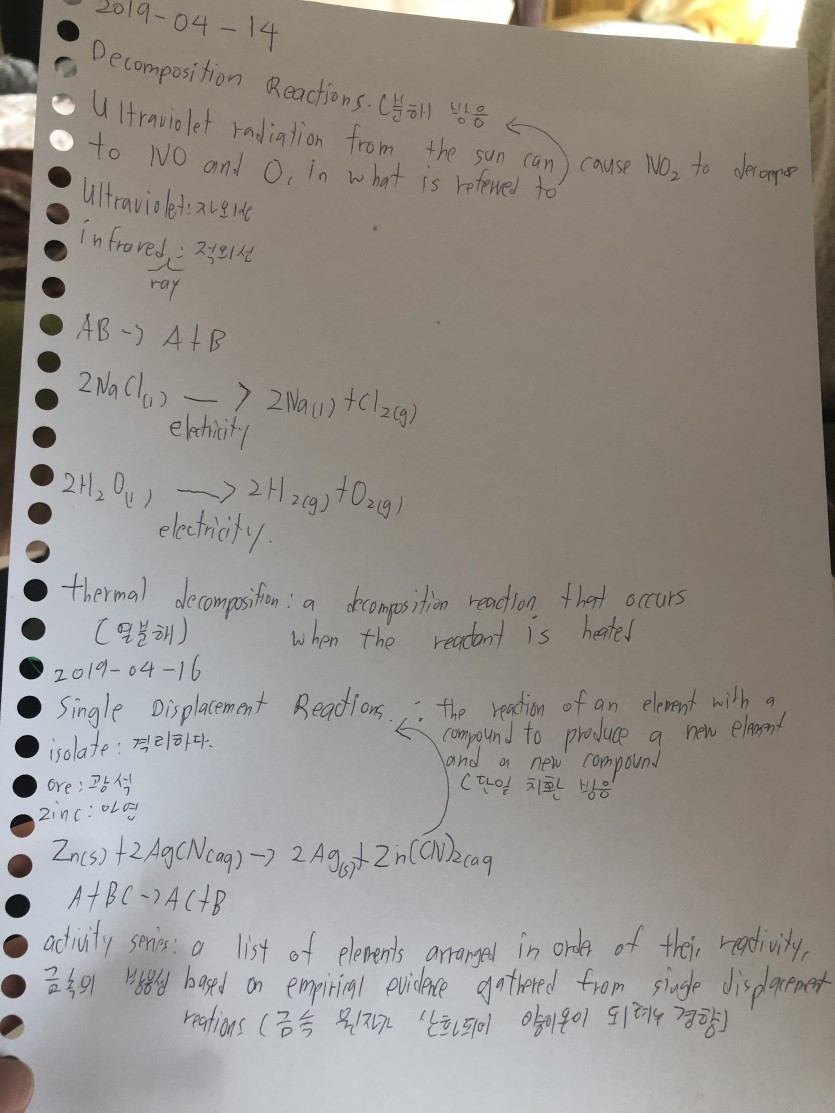 2019-04-14
Decomposition Reactions. (분해 방응
Ultraviolet radiation from the sun can cause NO₂ to decompose
to NO and O, in what is referred to
Ultraviolet: 자외선
infrared : 적외선
ray
AB -> A+B
2NaCl(l) —> 2Na(l)+Cl₂(g)
electricity
2H₂O(l) —> 2H₂(g)+O₂(g)
electricity.
thermal decomposition: a decomposition reaction that occurs
(열분해) when the reactant is heated
2019-04-16
Single Displacement Reactions. : the reaction of an element with a
compound to produce a new element
isolate : 격리하다.
and a new compound
(단일 치환 방응
ore : 광석
zinc : 아연
Zn(s)+2AgCN(aq) -> 2Ag(s)+Zn(CN)₂(aq
A+BC->AC+B
activity series: a list of elements arranged in order of their reactivity,
금속의 방응성 based on empirical evidence gathered from single displacement
reations (금속 원자가 산화되어 양이온이 되려는 경향)